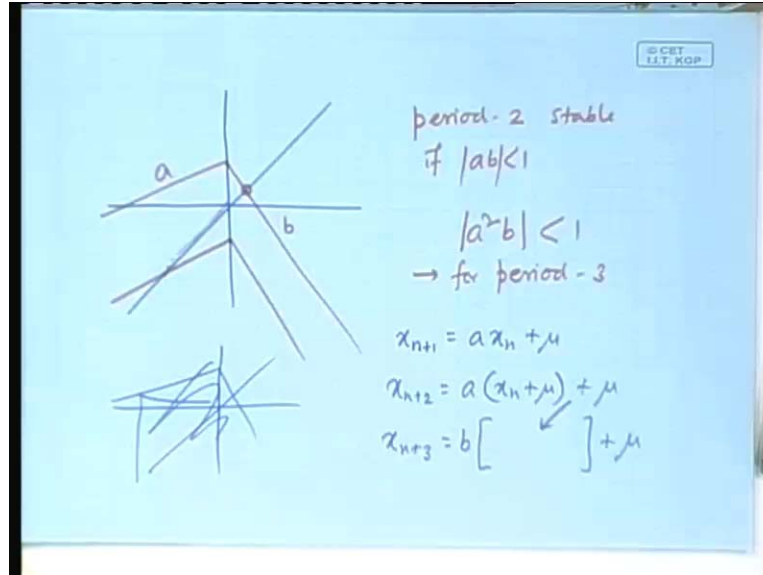 © CET
I.I.T. KGP
period-2 stable
if |ab|<1
a
b
|a²b| < 1
→ for period-3
xₙ₊₁ = axₙ + μ
xₙ₊₂ = a(xₙ+μ) + μ
xₙ₊₃ = b[ ] + μ